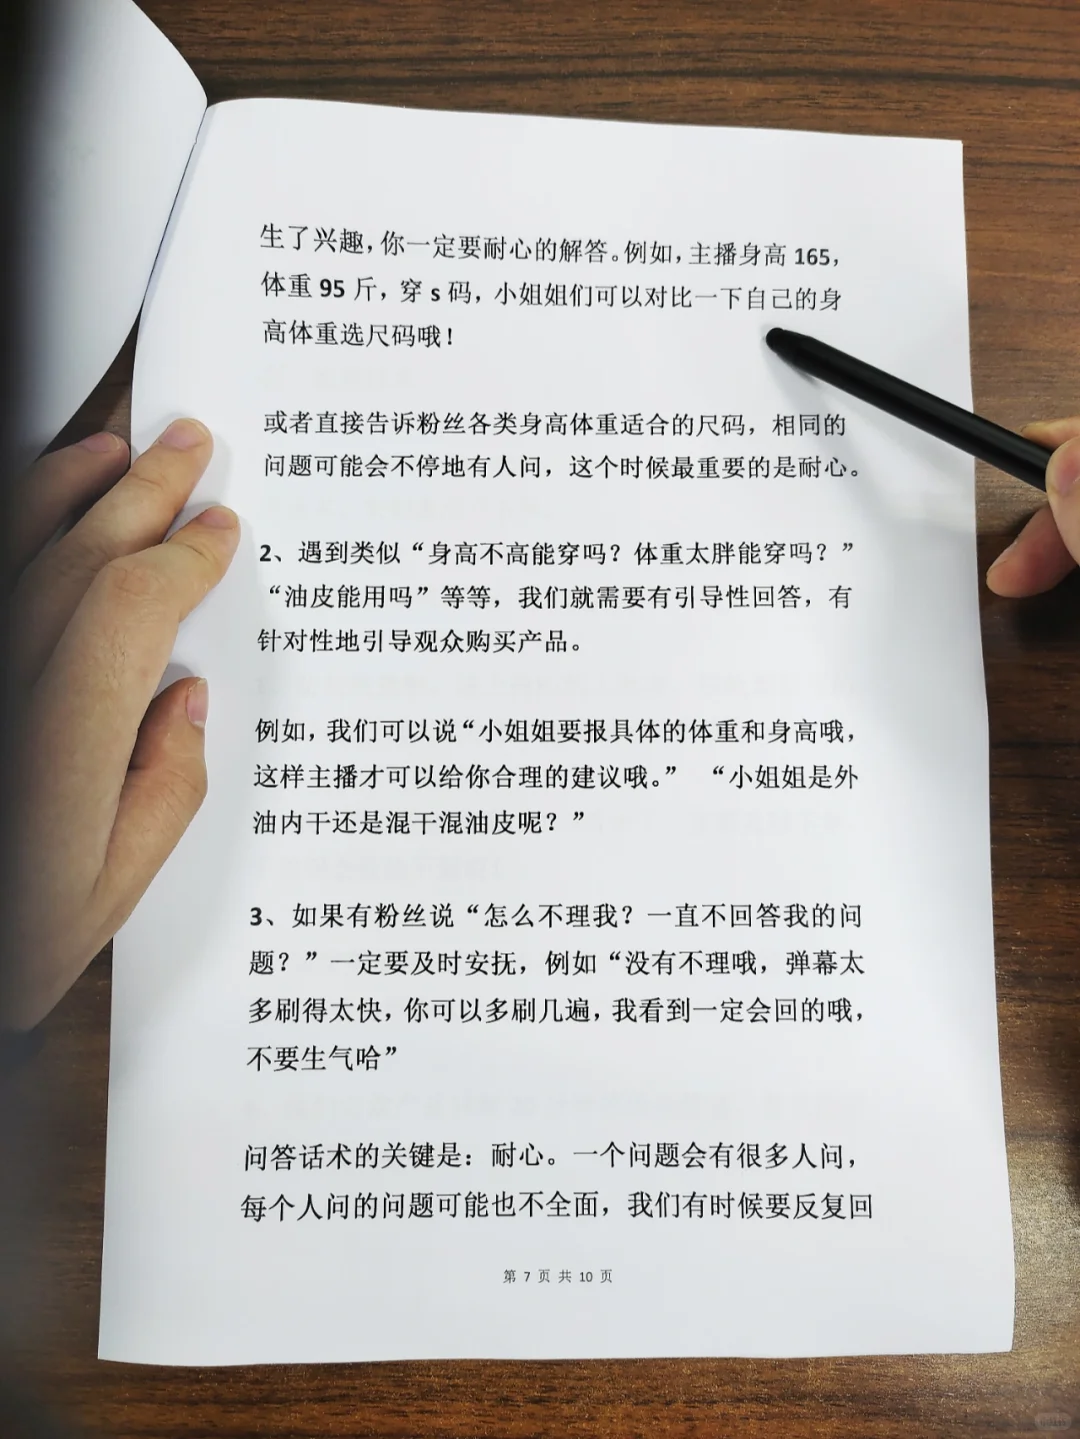 生了兴趣，你一定要耐心的解答。例如，主播身高 165，
体重 95 斤，穿 s 码，小姐姐们可以对比一下自己的身
高体重选尺码哦！
或者直接告诉粉丝各类身高体重适合的尺码，相同的
问题可能会不停地有人问，这个时候最重要的是耐心。
2、遇到类似“身高不高能穿吗？体重太胖能穿吗？”
“油皮能用吗”等等，我们就需要有引导性回答，有
针对性地引导观众购买产品。
例如，我们可以说“小姐姐要报具体的体重和身高哦，
这样主播才可以给你合理的建议哦。” “小姐姐是外
油内干还是混干混油皮呢？”
3、如果有粉丝说“怎么不理我？一直不回答我的问
题？”一定要及时安抚，例如“没有不理哦，弹幕太
多刷得太快，你可以多刷几遍，我看到一定会回的哦，
不要生气哈”
问答话术的关键是：耐心。一个问题会有很多人问，
每个人问的问题可能也不全面，我们有时候要反复回
第 7 页 共 10 页